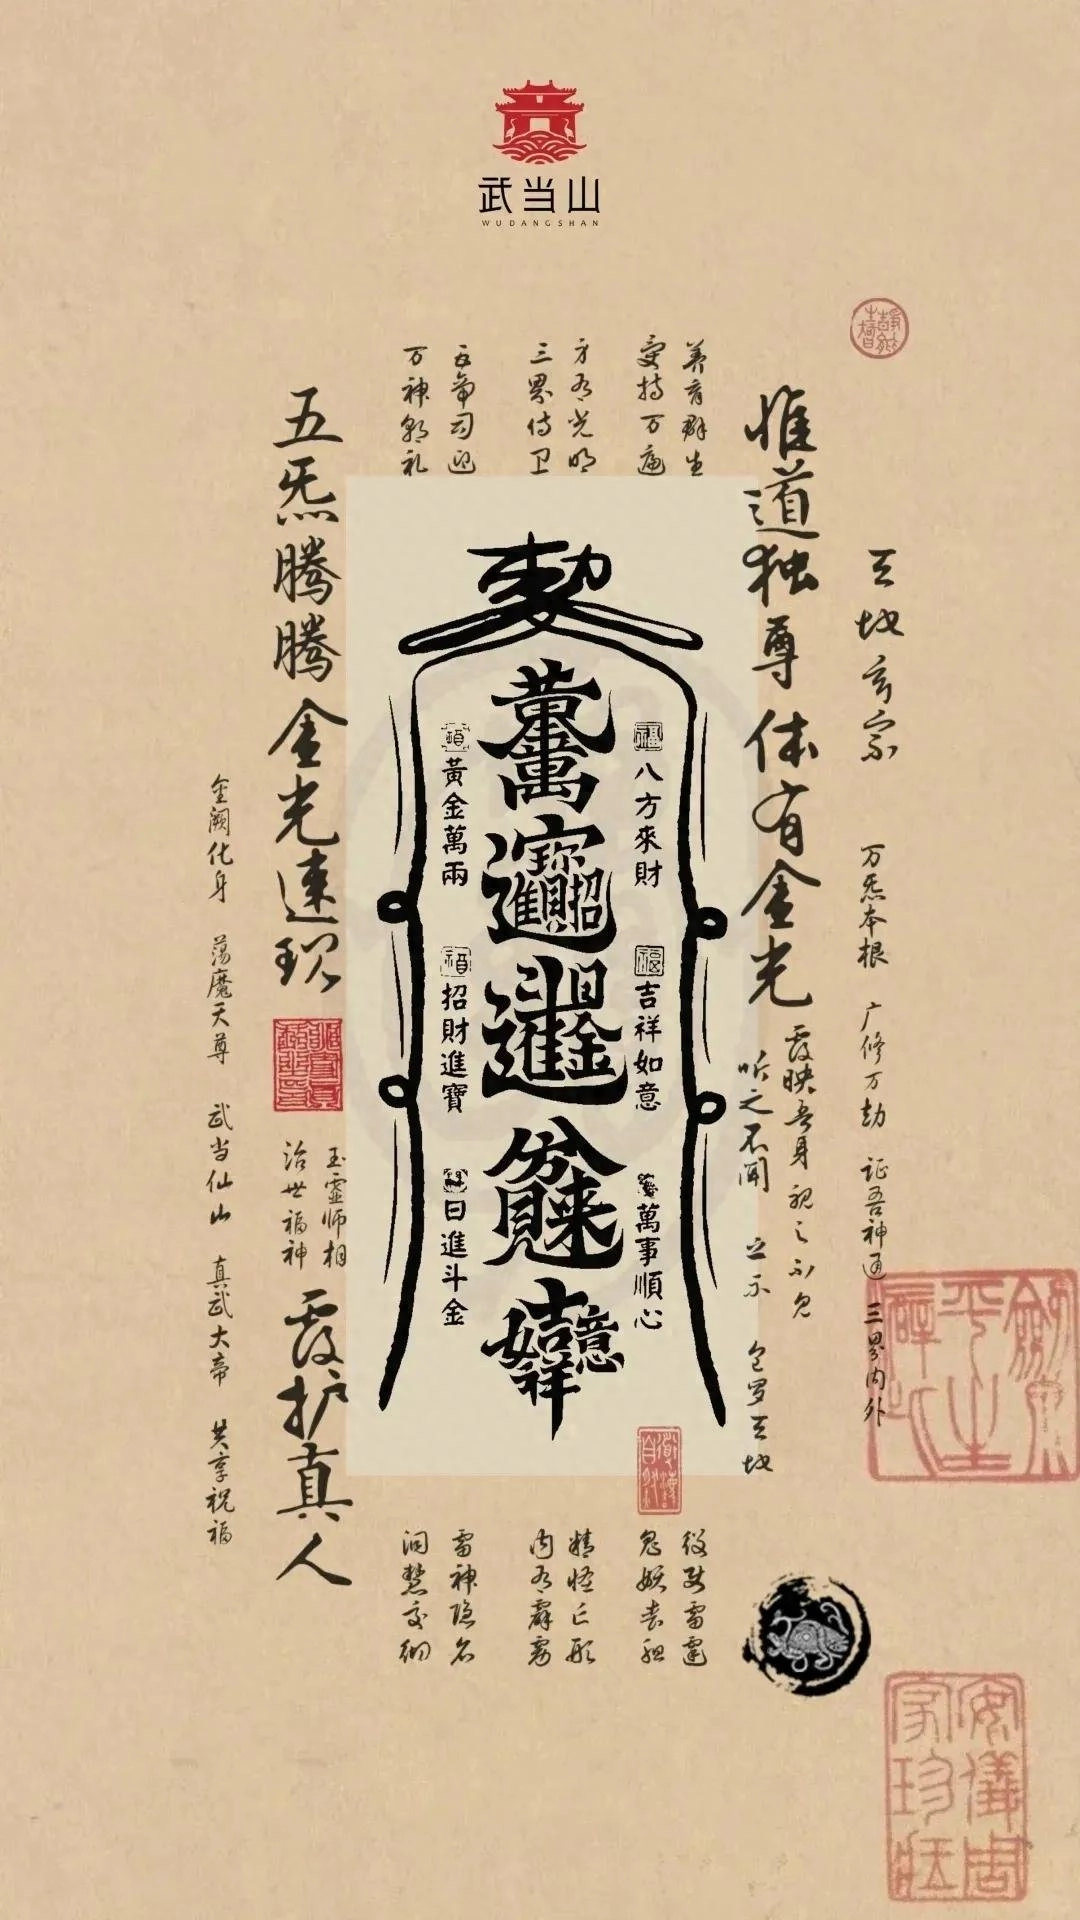 武当山
WUDANGSHAN
天地玄宗
万炁本根
广修万劫
证吾神通
三界内外
惟道独尊
体有金光
覆映吾身
视之不见
听之不闻
包罗天地
养育群生
受持万遍
身有光明
三界侍卫
五帝司迎
万神朝礼
役使雷霆
鬼妖丧胆
精怪亡形
内有霹雳
雷神隐名
洞慧交彻
五炁腾腾
金光速现
覆护真人
玉虚师相
治世福神
金阙化身
荡魔天尊
武当仙山
真武大帝
共享祝福
敕
八方來財
吉祥如意
萬事順心
黃金萬兩
招財進寶
日進斗金